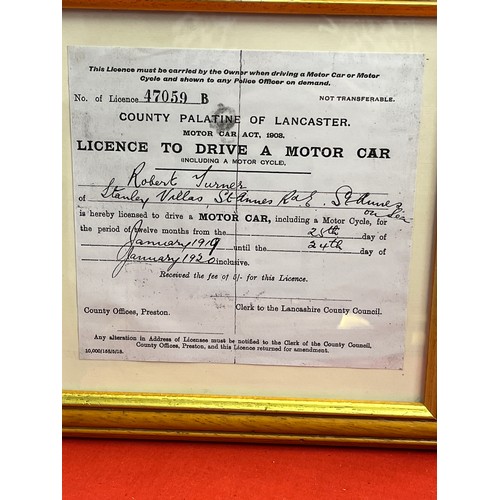 This Licence must be carried by the Owner when driving a Motor Car or Motor
Cycle and shown to any Police Officer on demand.
No. of Licence 47059 B NOT TRANSFERABLE.
COUNTY PALATINE OF LANCASTER.
MOTOR CAR ACT, 1903.
LICENCE TO DRIVE A MOTOR CAR
(INCLUDING A MOTOR CYCLE).
Robert Turner
of Stanley Villas, St Annes Rd E, St Annes
on Sea
is hereby licensed to drive a MOTOR CAR, including a Motor Cycle, for
the period of twelve months from the 25th day of
January 1919 until the 24th day of
January 1920 inclusive.
Received the fee of 5/- for this Licence.
County Offices, Preston. Clerk to the Lancashire County Council.
Any alteration in Address of Licensee must be notified to the Clerk of the County Council,
County Offices, Preston, and this Licence returned for amendment.